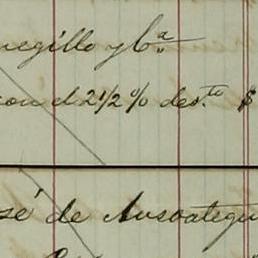 negillo y Ca
con el 2 1/2 % des.to $
sé de Ausoategui